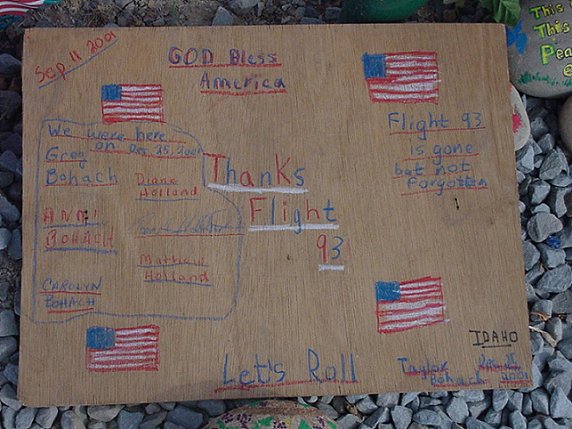 Sep 11 2001
GOD Bless
America
We were here
on Dec 25, 2001
Greg
Bohach
Diane
Holland
ANNI
BOHACH
Mathew
Holland
CAROLYN
BOHACH
Thanks
Flight
93
Flight 93
is gone
but not
forgotten
Let's Roll
IDAHO
Taylor
Bohach
2001
This
This
Pea